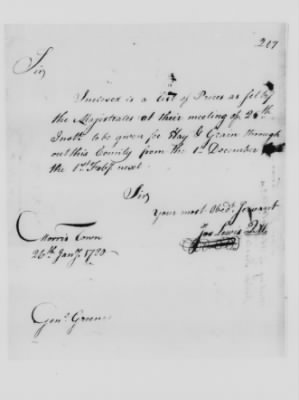 217
Sir
Inclosed is a list of Prices as set by
the Magistrates at their meeting of 25th
Instt. to be given for Hay & Grain through
out this County from the 1st December to
the 1st Feby next
Sir
Your most Obedt. Servant
Jos Lewis Q M
Morris Town
26th Jany. 1780
Genl. Greene